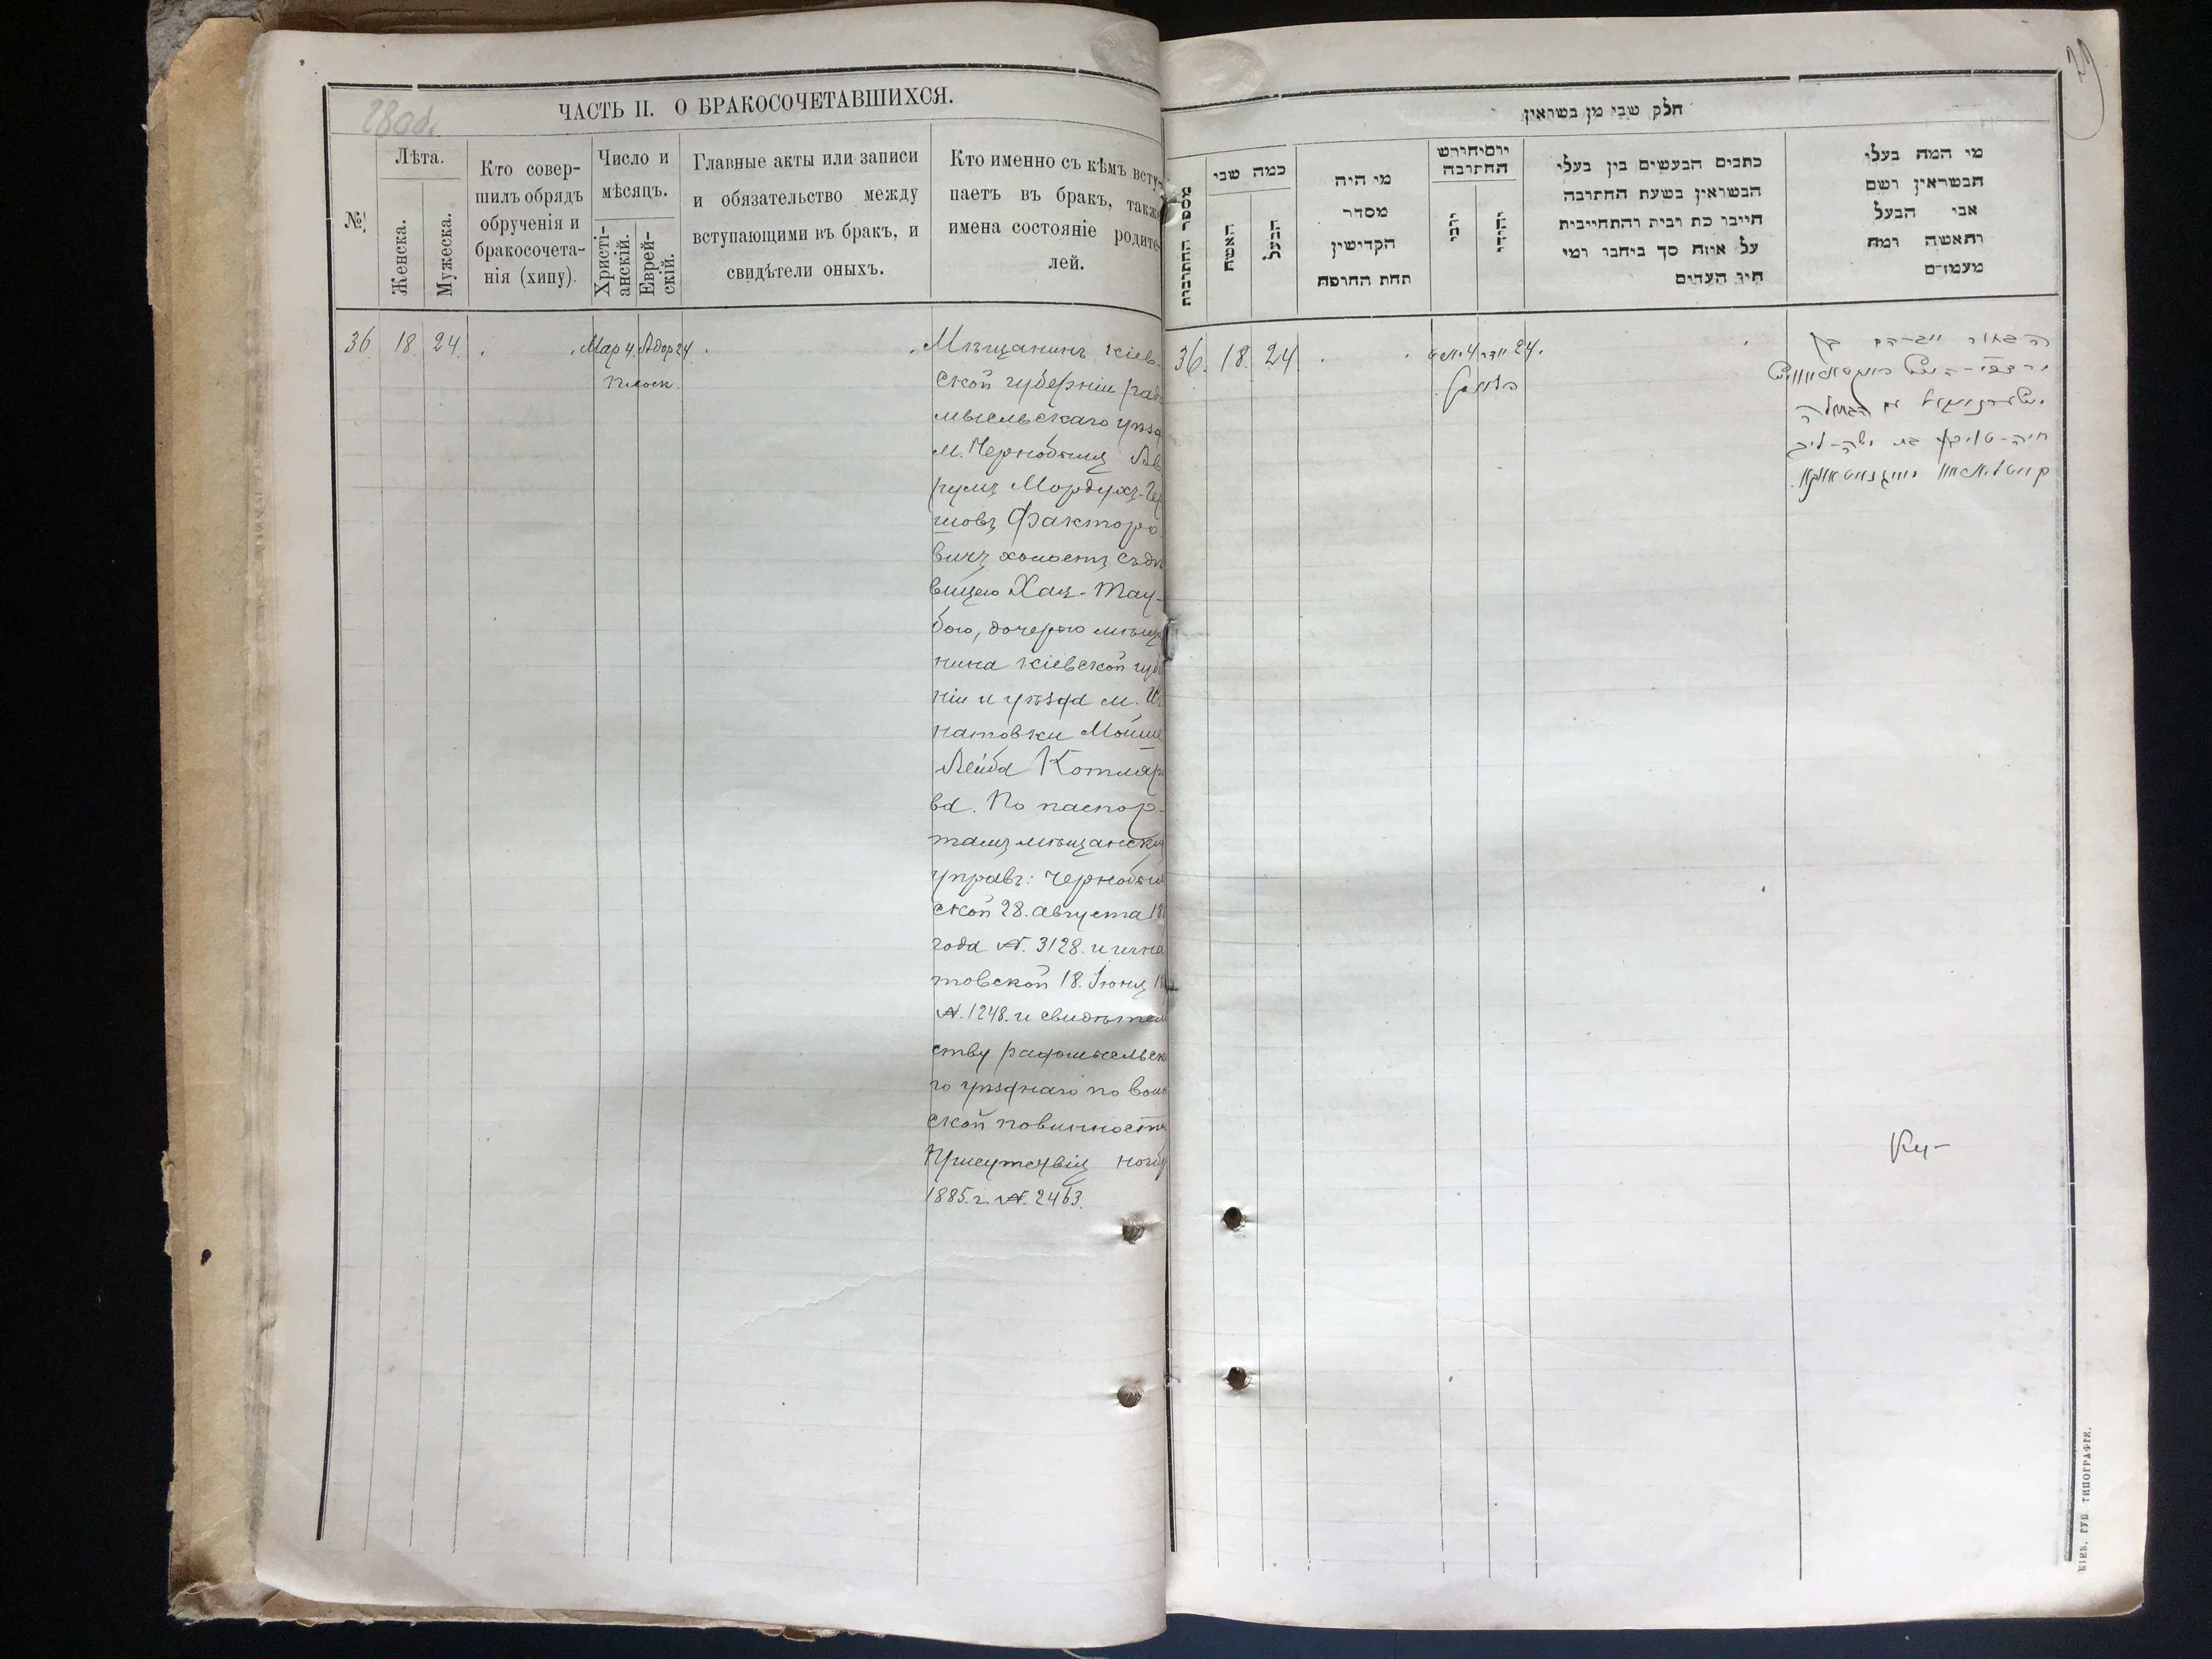 28об.
ЧАСТЬ II. О БРАКОСОЧЕТАВШИХСЯ.
№
Лѣта.
Женска.
Мужеска.
Кто совер-
шилъ обрядъ
обрученія и
бракосочета-
нія (хипу).
Число и
мѣсяцъ.
Христі-
анскій.
Еврей-
скій.
Главные акты или записи
и обязательство между
вступающими въ бракъ, и
свидѣтели оныхъ.
Кто именно съ кѣмъ всту-
паетъ въ бракъ, также
имена состояніе родите-
лей.
36 18 24 Мар 4. Адор 24
Плоск.
Мѣщанинъ Кіев-
ской губерніи рад-
мысльскаго уѣзд
м. Чернобыля Ав
румъ Мордухъ-Гер
шовъ Факторо
вичъ холостъ съ дѣ
вицею Хая-Тау-
бою, дочерью мѣща
нина Кіевской губ
ніи и уѣзда м. Иг
натовки Мойше
Лейба Котляр
ва. По паспор-
тамъ мѣщанскихъ
управъ: Чернобыл
ской 28. августа 18
года №. 3128. и игна
товской 18. Іюня 1
№. 1248. и свидѣтел
ству радомысльск
го уѣзднаго по воин
ской повинности
Присутствія нояб
1885. г. №. 2463.
29
חלק שבי מן בשואין
מספר החתובות
כמה שבי
האשה
הבעל
מי היה
מסדר
הקדישין
תחת החופה
יום וחודש
החתובה
יובי
יהודי
כתבים הבעשים בין בעלי
הבשואין בשעת החתובה
חייבו כת ובית והתחייבית
על איזה סך ביחבו ומי
חיו העדים
מי המה בעלי
הבשואין ושם
אבי הבעל
והאשה ומה
מעמדם
36. 18. 24 4 24.
הבחור אברהם בן
חיה-טויבע בת משה-ליב
КІЕВ. ГУБ. ТИПОГРАФІЯ.